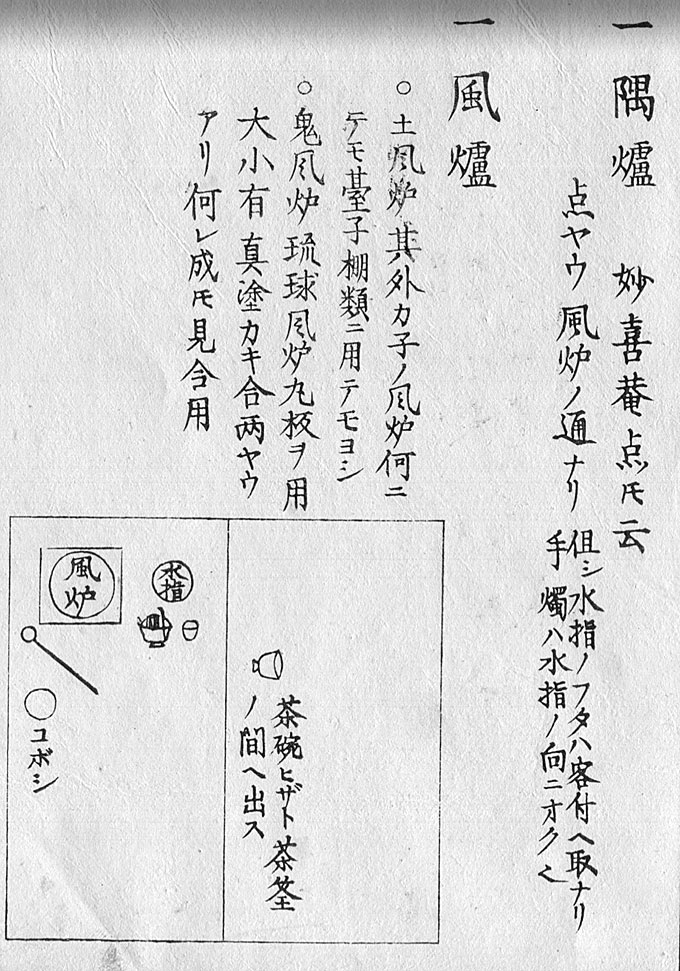 一 隅爐 妙喜菴点トモ云
点ヤウ風炉ノ通ナリ
但シ水指ノフタハ客付ヘ取ナリ
手燭ハ水指ノ向ニオク
一 風爐
○土風炉其外カ子ノ風炉何ニ
テモ臺子棚類ニ用テモヨシ
○鬼風炉琉球風炉丸板ヲ用
大小有真塗カキ合両ヤウ
アリ何レ成トモ見合用
茶碗ヒザト茶筌
ノ間ヘ出ス
水指
風炉
コボシ